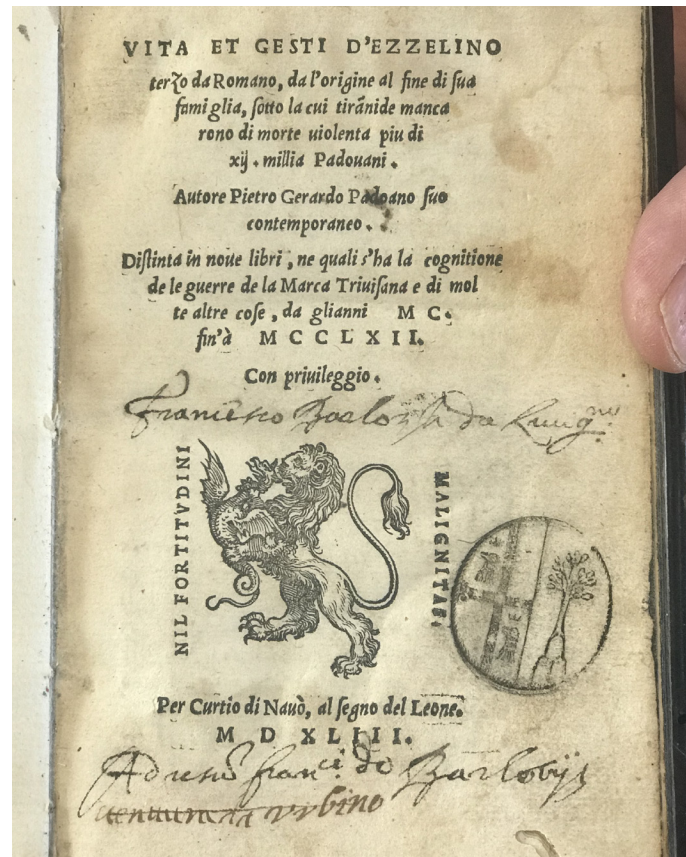 VITA ET GESTI D'EZZELINO
terzo da Romano, da l'origine al fine di sua
famiglia, sotto la cui tirānide manca
rono di morte uiolenta piu di
xij. millia Padouani.
Autore Pietro Gerardo Padoano suo
contemporaneo.
Distinta in noue libri, ne quali s'ha la cognitione
de le guerre de la Marca Triuisana e di mol
te altre cose, da glianni M C.
fin'à M C C L X I I.
Con priuileggio.
Francesco da
NIL FORTITVDINI
MALIGNITAS.
LIBER
Per Curtio di Nauò, al segno del Leone.
M D XLIII.
Ad fran.ci de Barlotijs
urbino